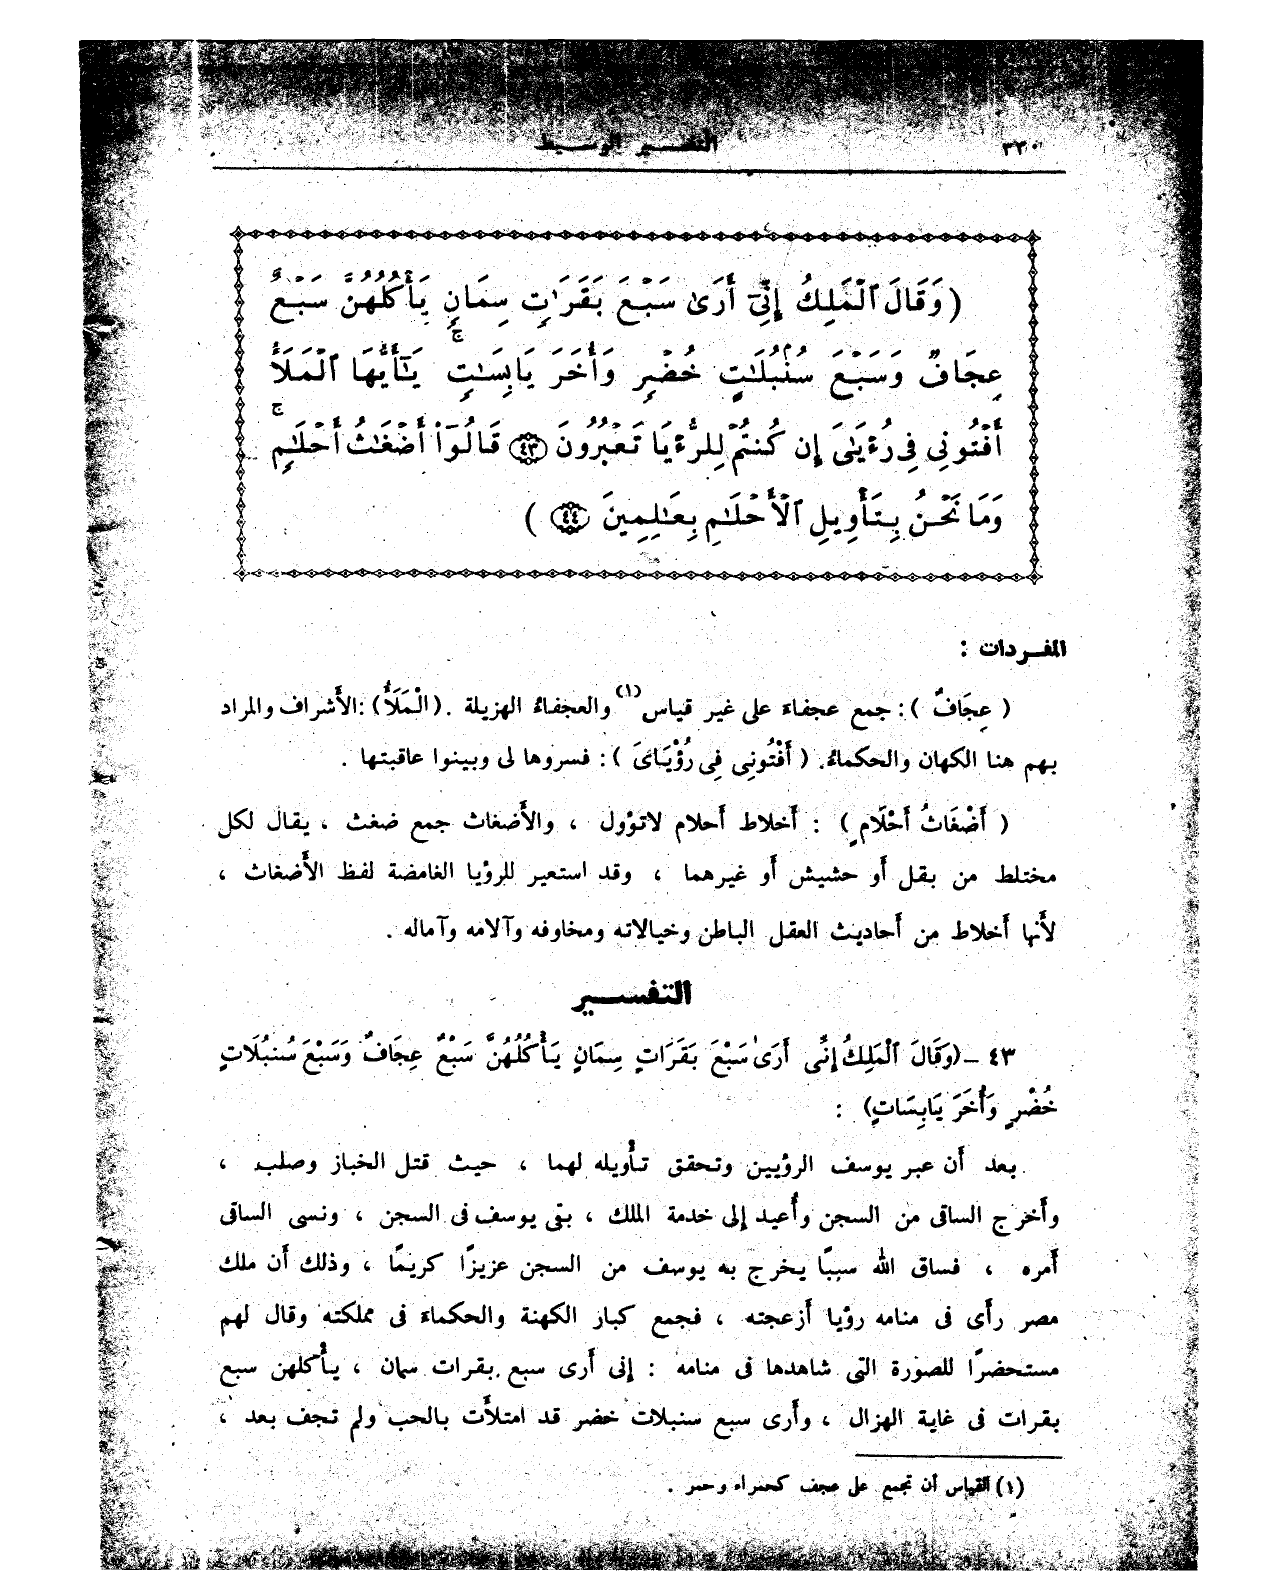 ٣٣٠ التفسير الوسيط
(وَقَالَ ٱلْمَلِكُ إِنِّىٓ أَرَىٰ سَبْعَ بَقَرَٰتٍ سِمَانٍ يَأْكُلُهُنَّ سَبْعٌ
عِجَافٌ وَسَبْعَ سُنۢبُلَٰتٍ خُضْرٍ وَأُخَرَ يَابِسَٰتٍ ۚ يَٰٓأَيُّهَا ٱلْمَلَأُ
أَفْتُونِى فِى رُءْيَٰىَ إِن كُنتُمْ لِلرُّءْيَا تَعْبُرُونَ ٤٣ قَالُوٓا۟ أَضْغَٰثُ أَحْلَٰمٍ ۚ
وَمَا نَحْنُ بِتَأْوِيلِ ٱلْأَحْلَٰمِ بِعَٰلِمِينَ ٤٤ )
المفـردات :
( عِجَافٌ ) : جمع عجفاءَ على غير قياس(١) والعجفاءُ الهزيلة . (الْمَلَأُ) :الأَشراف والمراد
بهم هنا الكهان والحكماءُ. ( أَفْتُونِى فِى رُؤْيَاىَ ) : فسروها لى وبينوا عاقبتها .
( أَضْغَاثُ أَحْلَامٍ ) : أَخلاط أَحلام لاتؤول ، والأَضغاث جمع ضغث ، يقال لكل
مختلط من بقل أَو حشيش أَو غيرهما ، وقد استعير للرؤيا الغامضة لفظ الأَضغاث ،
لأَنها أَخلاط من أَحاديث العقل الباطن وخيالاته ومخاوفه وآلامه وآماله .
التفسـير
٤٣ -(وَقَالَ ٱلْمَلِكُ إِنِّى أَرَىٰ سَبْعَ بَقَرَاتٍ سِمَانٍ يَأْكُلُهُنَّ سَبْعٌ عِجَافٌ وَسَبْعَ سُنبُلَاتٍ
خُضْرٍ وَأُخَرَ يَابِسَاتٍ) :
بعد أَن عبر يوسف الرؤيين وتحقق تأْويله لهما ، حيث قتل الخباز وصلب ،
وأَخرج الساقى من السجن وأُعيد إلى خدمة الملك ، بقى يوسف فى السجن ، ونسى الساقى
أَمره ، فساق الله سببًا يخرج به يوسف من السجن عزيزًا كريمًا ، وذلك أَن ملك
مصر رأَى فى منامه رؤيا أَزعجته ، فجمع كبار الكهنة والحكماءَ فى مملكته وقال لهم
مستحضرًا للصورة التى شاهدها فى منامه : إنى أَرى سبع بقرات سمان ، يأْكلهن سبع
بقرات فى غاية الهزال ، وأَرى سبع سنبلات خضر قد امتلأَت بالحب ولم تجف بعد ،
(١) القياس أن تجمع على عجف كحمراء وحمر .